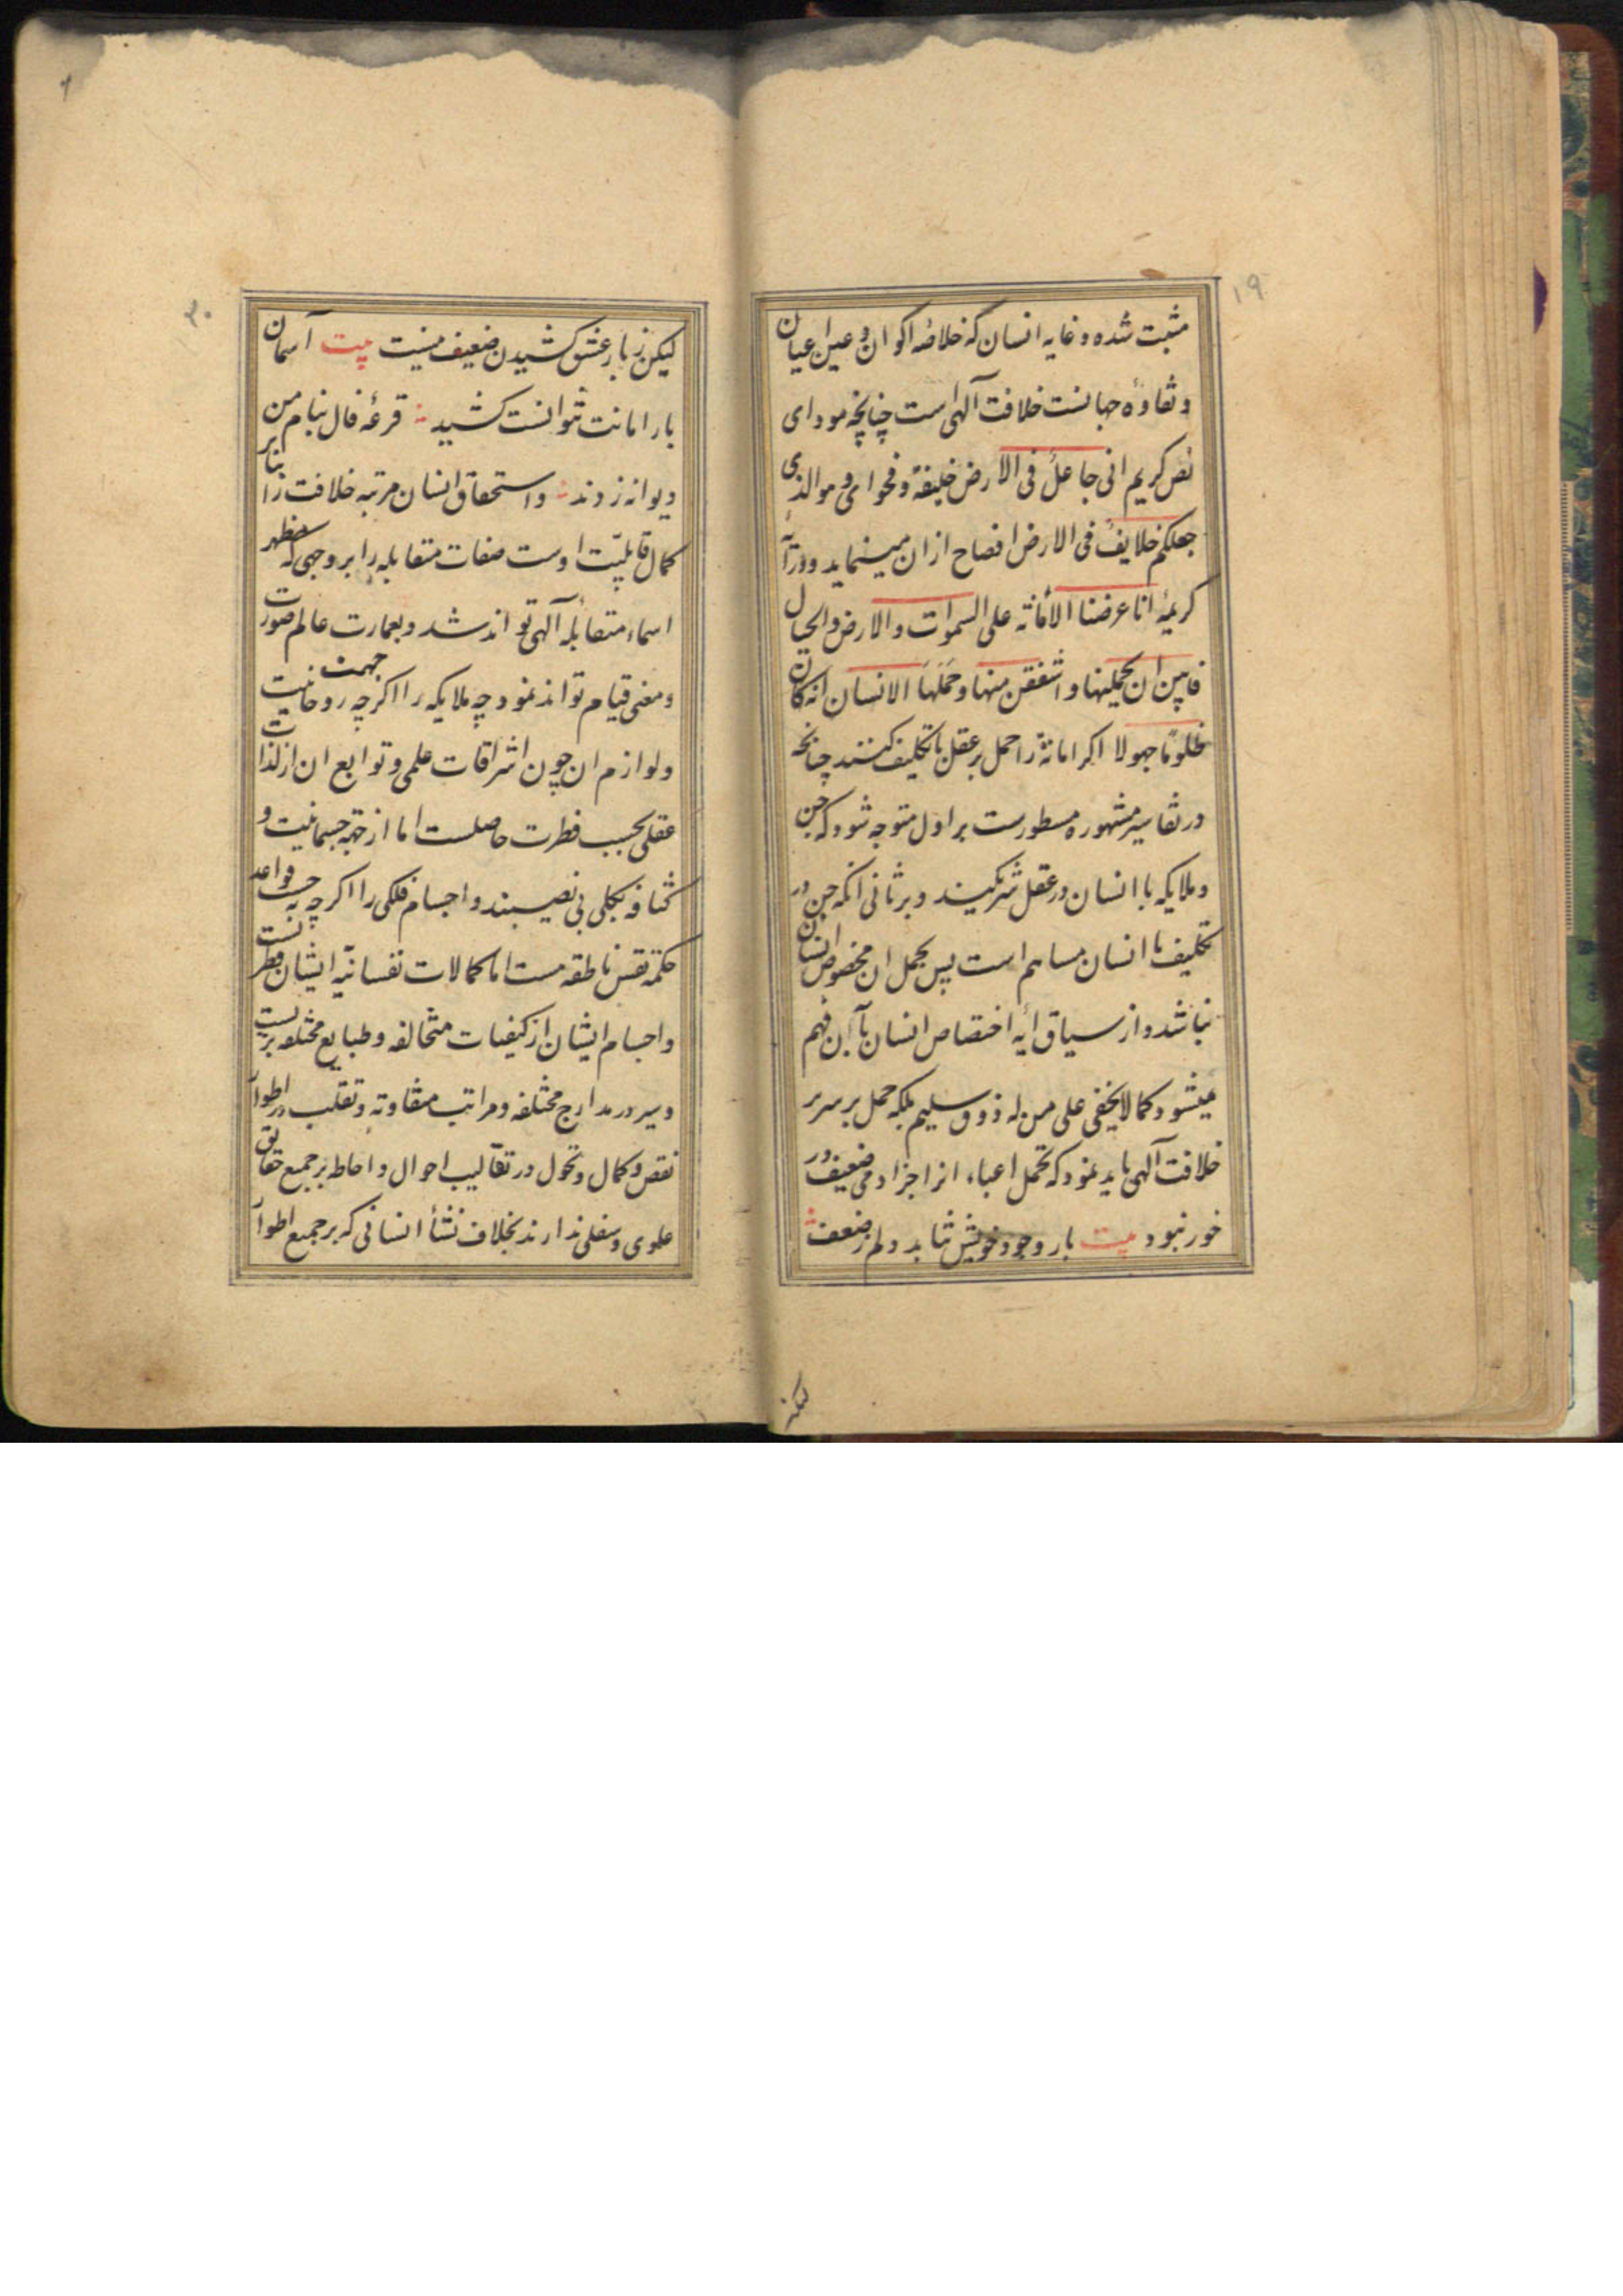 ۱۹
مثبت شده و غایه انسان که خلاصه اکوان و عین اعیان
و نقاوه جهانست خلافت آلهی است چنانچه مودای
نص کریم انی جاعل فی الارض خلیفة و فحوای و هو الذی
جعلکم خلایف فی الارض افصاح ازان مینماید و در آیه
کریمه انا عرضنا الامانة علی السموات و الارض و الجبال
فابین ان یحملنها و اشفقن منها و حملها الانسان انه کان
ظلوما جهولا اکر امانة را حمل بر عقل یا تکلیف کنند چنانچه
در تفاسیر مشهوره مسطورست بر اول متوجه شود که جن
و ملایکه با انسان در عقل شریکیند و بر ثانی انکه جن در
تکلیف با انسان مساهم است پس محمل ان مخصوص انسان
نباشد و از سیاق ایه اختصاص انسان بآن فهم
میشود کما لا یخفی علی من له ذوق سلیم بلکه حمل بر سریر
خلافت آلهی باید نمود که تحمل اعباء انرا جز ادمی ضعیف در
خور نبود بیت بار وجود خویش نتابد دلم ز ضعف
لیکن
۲۰
لیکن ز بار عشق کشیدن ضعیف نیست بیت آسمان
بار امانت نتوانست کشید قرعه فال بنام من
دیوانه زدند و استحقاق انسان مرتبه خلافت را بنابر
کمال قابلیت اوست صفات متقابله را بر وجهی که مظهر
اسماء متقابله آلهی تواند شد و بعمارت عالم صورت
و معنی قیام تواند نمود چه ملایکه را اکرچه جهت روحانیت
و لوازم ان چون اشراقات علمی و توابع ان از لذات
عقلی بحسب فطرت حاصلست اما از جهة جسمانیت و
کثافه بکلی بی نصیبند و اجسام فلکی را اکر چه بحسب قواعد
حکمة نفس ناطقه هست اما کمالات نفسانیه ایشان فطریست
و اجسام ایشان از کیفیات متخالفه و طبایع مختلفه بریست
و سیر در مدارج مختلفه و مراتب متفاوته و تقلب در اطوار
نقص و کمال و تحول در تقالیب احوال و احاطه بر جمیع حقایق
علوی و سفلی ندارند بخلاف نشأ انسانی که بر جمیع اطوار